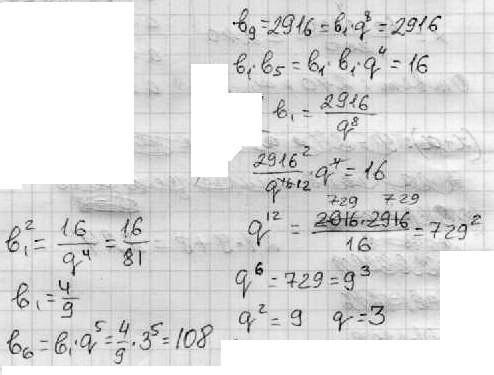 в₉ = 2916 = в₁·q⁸ = 2916
в₁·в₅ = в₁·в₁·q⁴ = 16
в₁ = 2916/q⁸
2916²/q¹⁶ ¹²·q⁴ = 16
729 729
q¹² = 2916·2916/16 = 729²
q⁶ = 729 = 9³
q² = 9 q = 3
в₁² = 16/q⁴ = 16/81
в₁ = 4/9
в₆ = в₁·q⁵ = 4/9·3⁵ = 108